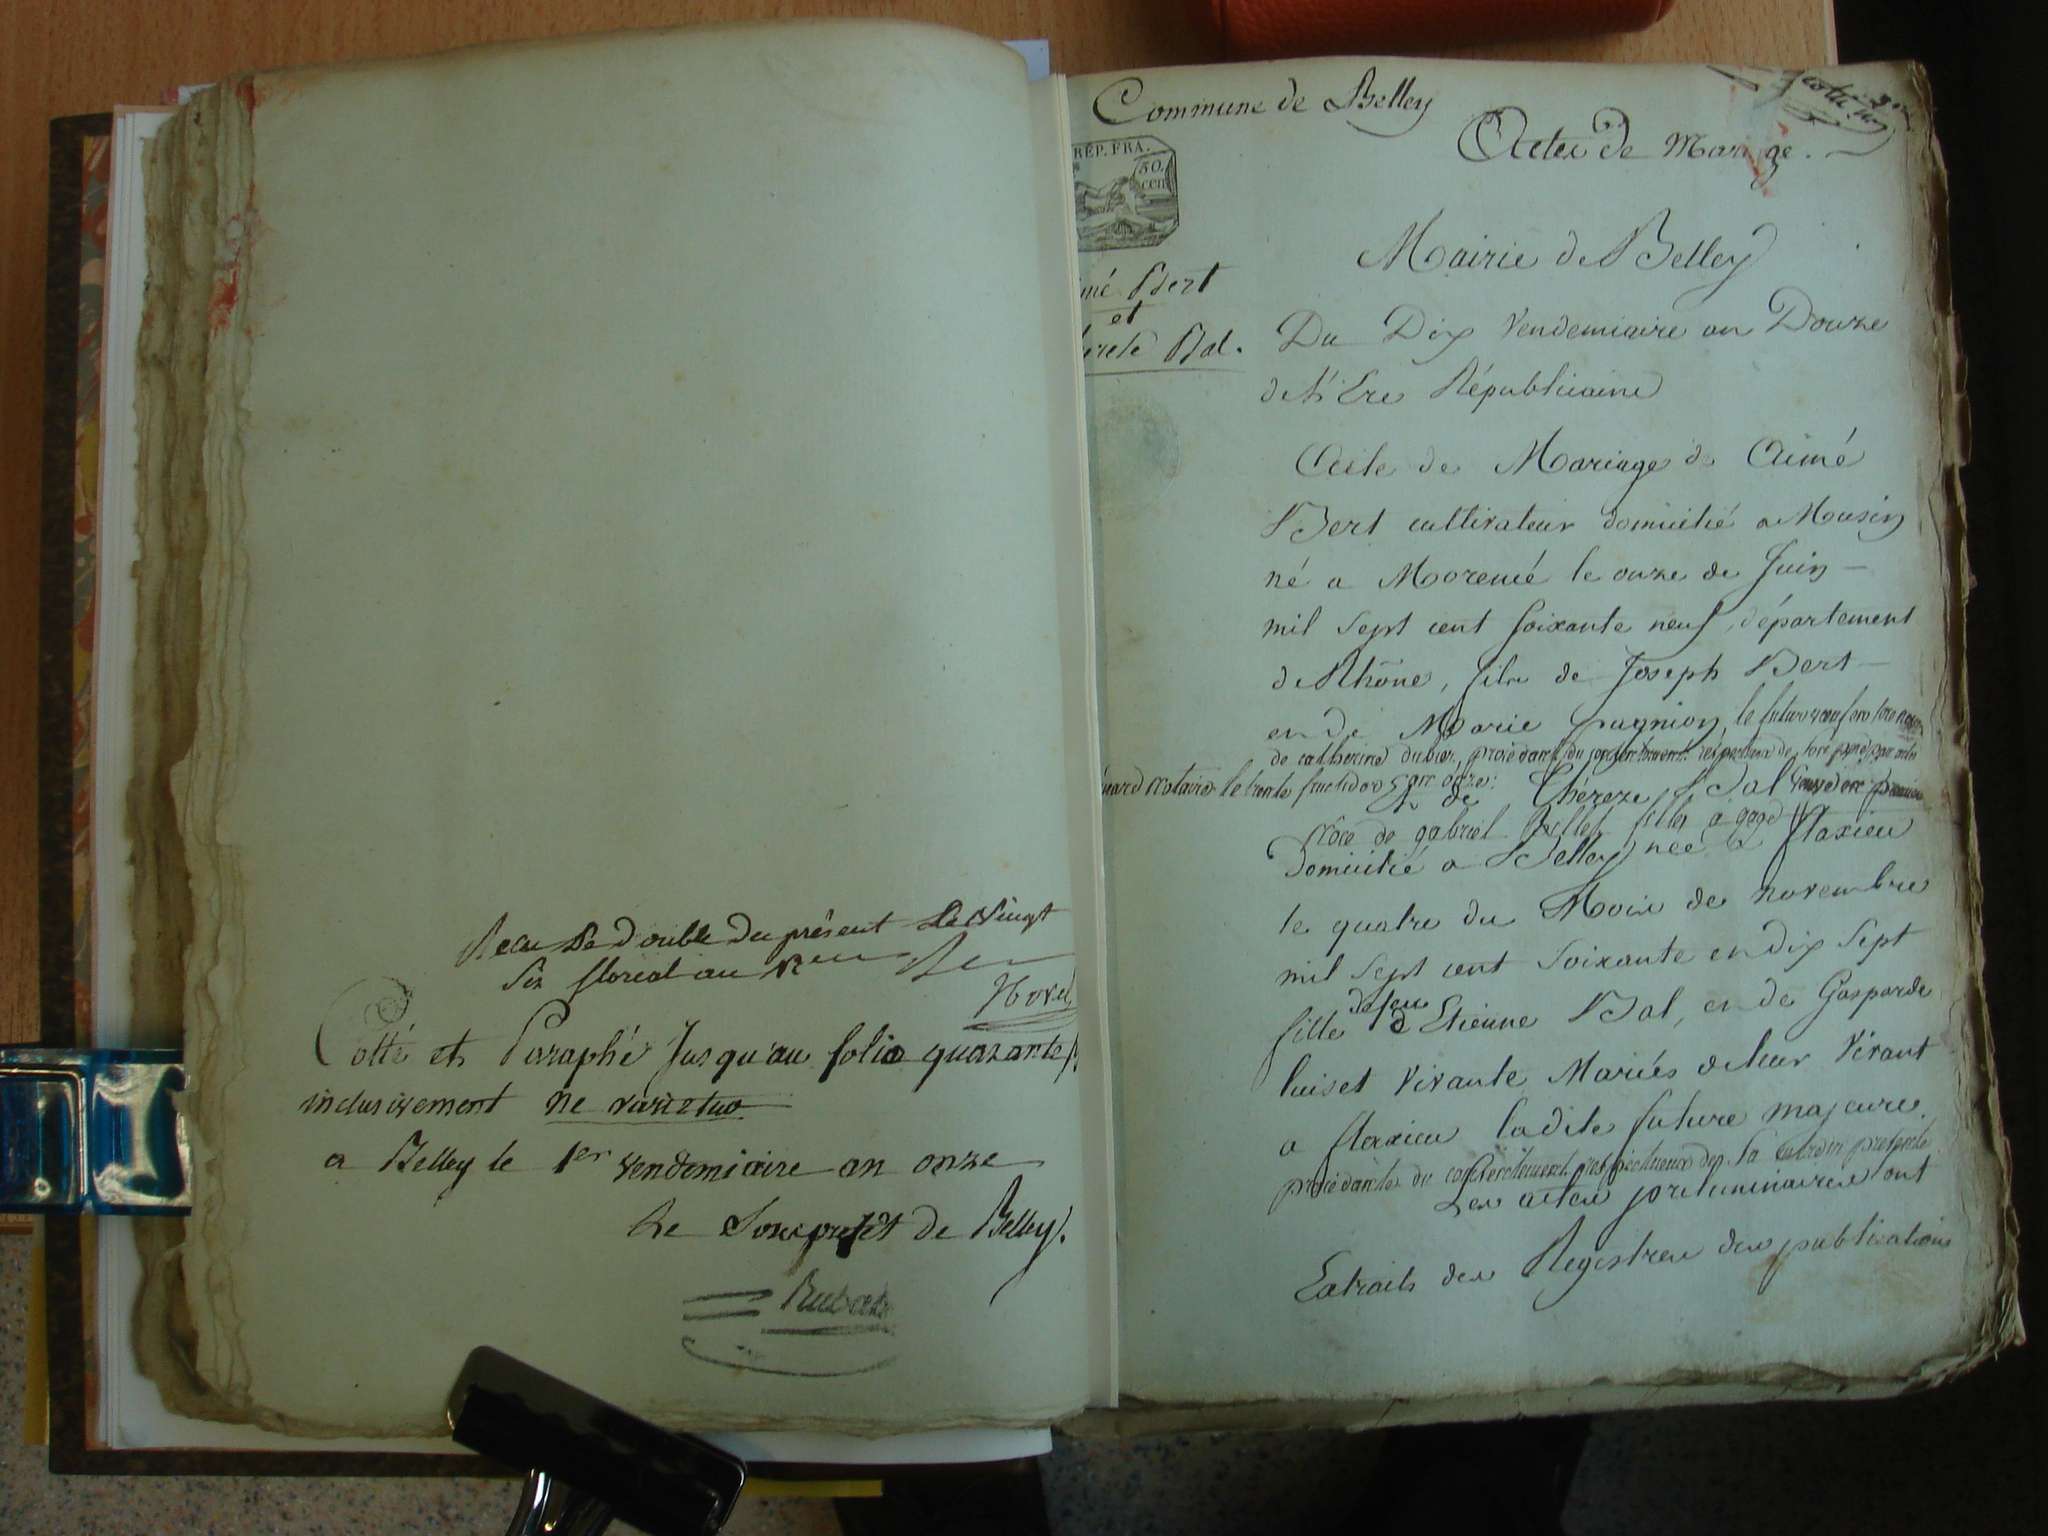 Recu Le Double du présent Le Vingt
Six floreal an 12
Morel
Cotté et Paraphé Jusqu'au folio quarante
inclusivement ne varietur
a Belley le 1er vendemiaire an onze
Le Sousprefet de Belley.
Rubat
Commune de Belley
Actes de Mariage.
RÉP. FRA.
50.
cen
mé Bert
et
Bal.
Mairie de Belley
Du Dix Vendemiaire an Douze
de l'Ere Républicaine
Acte de Mariage de Aimé
Bert cultivateur domicilié a Musin
né a Morencé le onze de Juin
mil Sept cent Soixante neuf, département
de Rhône, fils de Joseph Bert
en de Marie pugnion, le futur
de catherine procédant du
Notaire le trente fructidor an onze:
de Thereze Bal
Nôce de gabriel fille a gage
Domicilié a Belley née a flaxieu
le quatre du Mois de novembre
mil Sept cent Soixante en dix Sept
fille de feu Etienne Bal, en de Gasparde
luiset Vivante Mariés de leur Vivant
a flaxieu ladite future majeure.
procédante du consentement respectueux de Sa presente
Les actes preliminaires sont
Extraits des Registres des publications